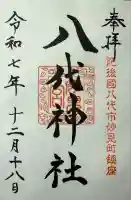 奉拝
肥後國八代市妙見町鎮座
八代神社
令和七年十二月十八日